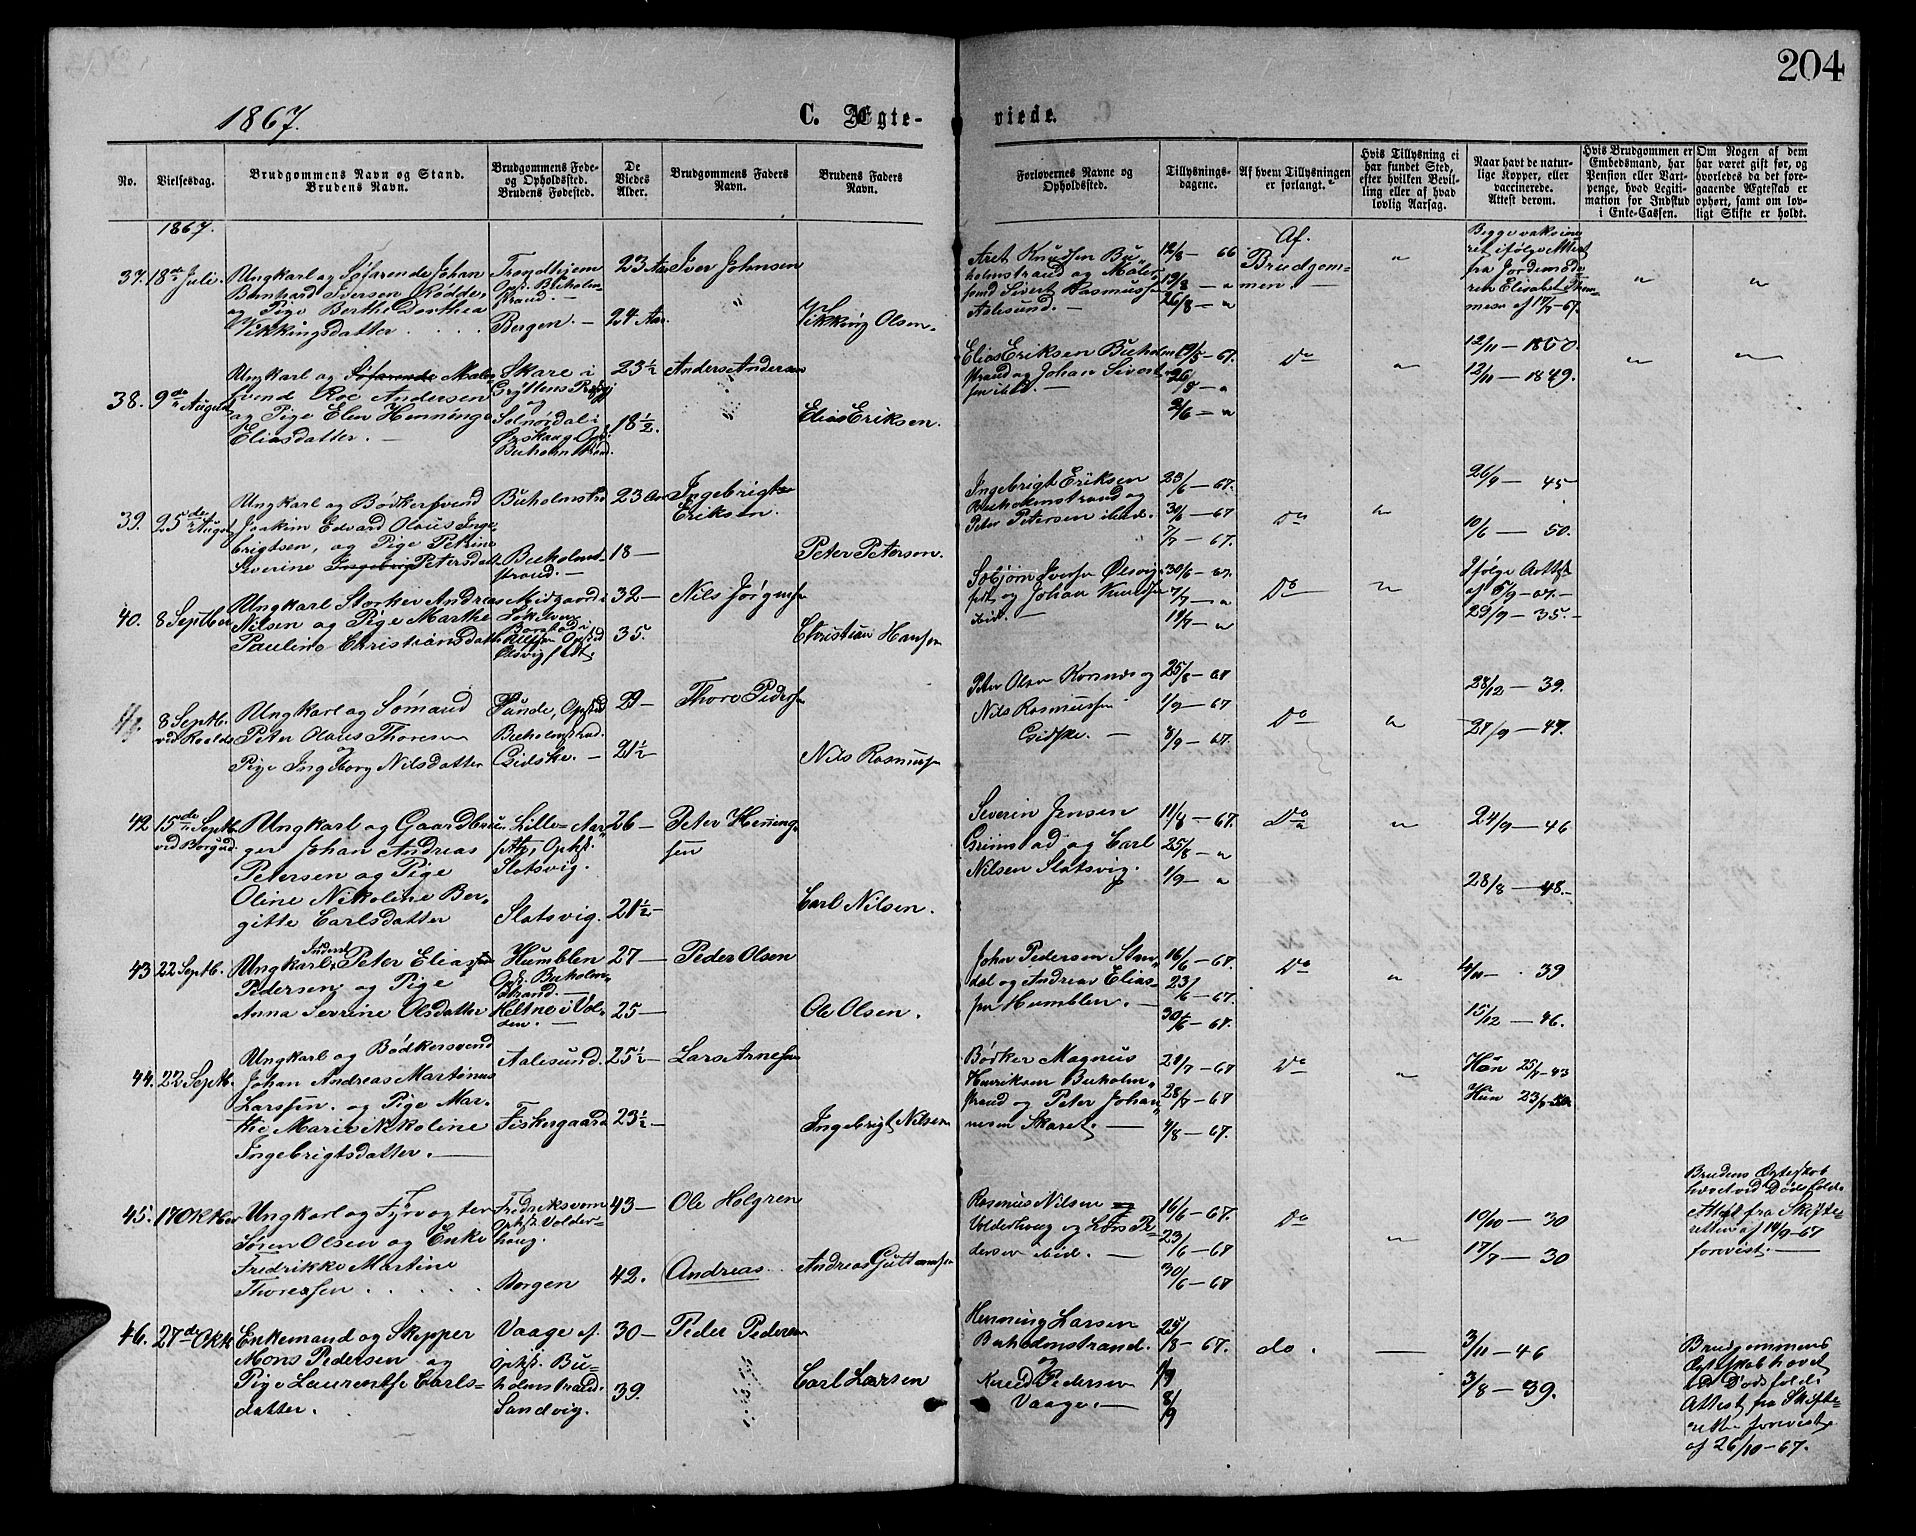 204
1867.
C. Ægte-
viede.
No.
Vielsesdag.
Brudgommens Navn og Stand.
Brudens Navn.
Brudgommens Føde-
og Opholdssted.
Brudens Fødested.
De
Viedes
Alder.
Brudgommens Faders
Navn.
Brudens Faders
Navn.
Forlovernes Navne og
Opholdssted.
Tillysnings-
dagene.
Af hvem Tillysningen
er forlangt.
Hvis Tillysning ei
har fundet Sted,
efter hvilken Bevil-
ling eller af hvad
lovlig Aarsag.
Naar havt de natur-
lige Kopper, eller
vaccinerede.
Attest derom.
Hvis Brudgommen er
Embedsmand, har
Pension eller Vart-
penge, hvad Legiti-
mation for Indskud
i Enke-Cassen.
Om Nogen af dem
har været gift før, og
hvorledes da det fore-
gaaende Ægteskab er
ophørt, samt om lov-
ligt Skifte er holdt.
1867.
37. 18de Juli.
Ungkarl og Søfarende Johan
Bernhard Iversen Rødde,
og Pige Berthe Dorthea
Vikkingsdatter
Trondhjem
Ops. Buholm-
strand. —
Bergen. —
23 Aar
24 Aar
Iver Johnsen
Vikking Olsen.
Aret Knudsen Bu-
holmstrand og Maler-
svend Sivert Rasmussen
Aalesund. —
12/8 — 66
19/8 — "
26/8 — "
Af
Brudgom-
men. —
"
Begge vaksine-
ret ifølge Attest
fra Jordemode-
ren Elisabet
af 17/7-67.
"
"
38. 9de August
Ungkarl og Søfarende Maler-
svend Roe Andersen
og Pige Elen Hemmings
Eliasdatter. —
Skare i
Gryttens Prgj
og
Solnørdal i
Ørskaug Ops.
Buholmstrand.
23½
18½.
Anders Andersen
Elias Eriksen.
Elias Eriksen Buholm-
strand og Johan Sivert-
sen ibid. —
19/5 — 67.
26/5 — "
2/6 — "
Do
"
12/11 — 1850.
12/11 — 1849.
"
"
39. 25de August
Ungkarl og Bødkersvend
Joakim Edvard Olaus Inge-
brigtsen, og Pige Petrine
Severine Ingeborg Petersdatt.
Buholmstrd
Buholm-
strand. —
23 Aar
18 —
Ingebrigt
Eriksen.
Peter Petersen.
Ingebrigt Eriksen
Buholmstrand og
Peter Petersen ibid.
23/6 — 67.
30/6 — 67
7/7 — 67.
Do
"
26/9 — 45
10/6 — 50.
40. 8 Septber
Ungkarl Storker Andreas
Nilsen og Pige Marthe
Pauline Christiansdatter
32 —
35.
Nils Jørgensen
Christian Hansen
30/6 — 67.
7/7 — "
14/7 — "
Do
"
Ifølge Attest
af 5/9-67.
29/9 — 35. —
41. 8 Septb.
ved Roalds
Ungkarl og Sømand
Peter Olaus Thoresen
og
Pige Ingeborg Nilsdatter
Sunde, Opsted
Buholmstrand.
Gidske. —
29 —
21½ —
Thore Pedersen
Nils Rasmussen
Peter Olsen Korsnes og
Nils Rasmussen
Gidske. —
25/8 — 67
1/9 — 67
8/9 — 67.
Do
"
28/12 — 39.
27/9 — 47.
42 15de Septb.
ved Borgund
Ungkarl og Gaardbru-
ger Johan Andreas
Petersen og Pige
Oline Nikoline Ber-
gitte Carlsdatter
Lille-Aar-
Ophs.
Slatsvig.
Slatsvig.
26 —
21½ —
Peter Heming-
sen
Carl Nilsen.
Severin Jensen
Grimstad og Carl
Nilsen Slatsvig.
11/8 — 67.
25/8 — "
1/9 — "
Do
"
24/9 — 46
28/8 — 48. —
43 22 Septb.
Ungkarl Peter Elias
Pedersen og Pige
Anna Severine Olsdatter
Humblen
Ops. Buholm-
strand. —
Heltne i Vol-
den. —
27 —
25 —
Peder Olsen
Ole Olsen.
John Pedersen Stan-
dal og Andreas Elias-
sen Humblen. —
16/6 — 67.
23/6 — 67.
30/6 — 67.
Do
"
4/11 — 39
15/12 — 46.
44. 22 Septb.
Ungkarl og Bødkersvend
Johan Andreas Martinus
Larssen. og Pige Mar-
the Marie Nikoline
Ingebrigtsdatter. —
Aalesund.
Fiskergaard
25½ —
23½ —
Lars Arnesen
Ingebrigt Nilsen
Bødker Magnus
Henriksen Buholm-
strand og Peter Johan-
nesen Skaret. —
21/7 — 67
28/7 — 67
4/8 — 67.
Do
"
Han 25/7-43
Hun 23/
45. 17 Oktber
Ungkarl og Fyrvogter
Søren Olsen og Enke
Fredrikke Martine
Thoresen
Fredriksvern
Ophst. Valder-
haug.
Bergen
43 —
42.
Ole Holgren
Andreas
Andreas Guttormsen
Rasmus Nilsen
Valderhaug og Lars Pe-
dersen ibid. —
16/6 — 67.
23/6 — 67
30/6 — 67
Do
"
10/10 — 30
17/7 — 30
Brudens Ægteskab
hævet ved Dødsfald.
Attest fra Skifte-
retten af 14/9-67
forevist. —
46. 27de Oktb
Enkemand og Skipper
Mons Pedersen og
Pige Laurentse Carls-
datter.
Vaage
ophst. Bu-
holmstrand.
Sandvig.
30 —
39.
Peder Pedersen
Carl Larsen
Henning Larsen
Buholmstrand.
og
Knud Pedersen
Vaage. —
25/8 — 67.
1/9
8/9
do.
—
3/11 — 46
3/8 — 39.
Brudgommens
Ægteskab hævet
ved Dødsfald.
Attest fra Skifte-
retten forevist
af 26/10-67.